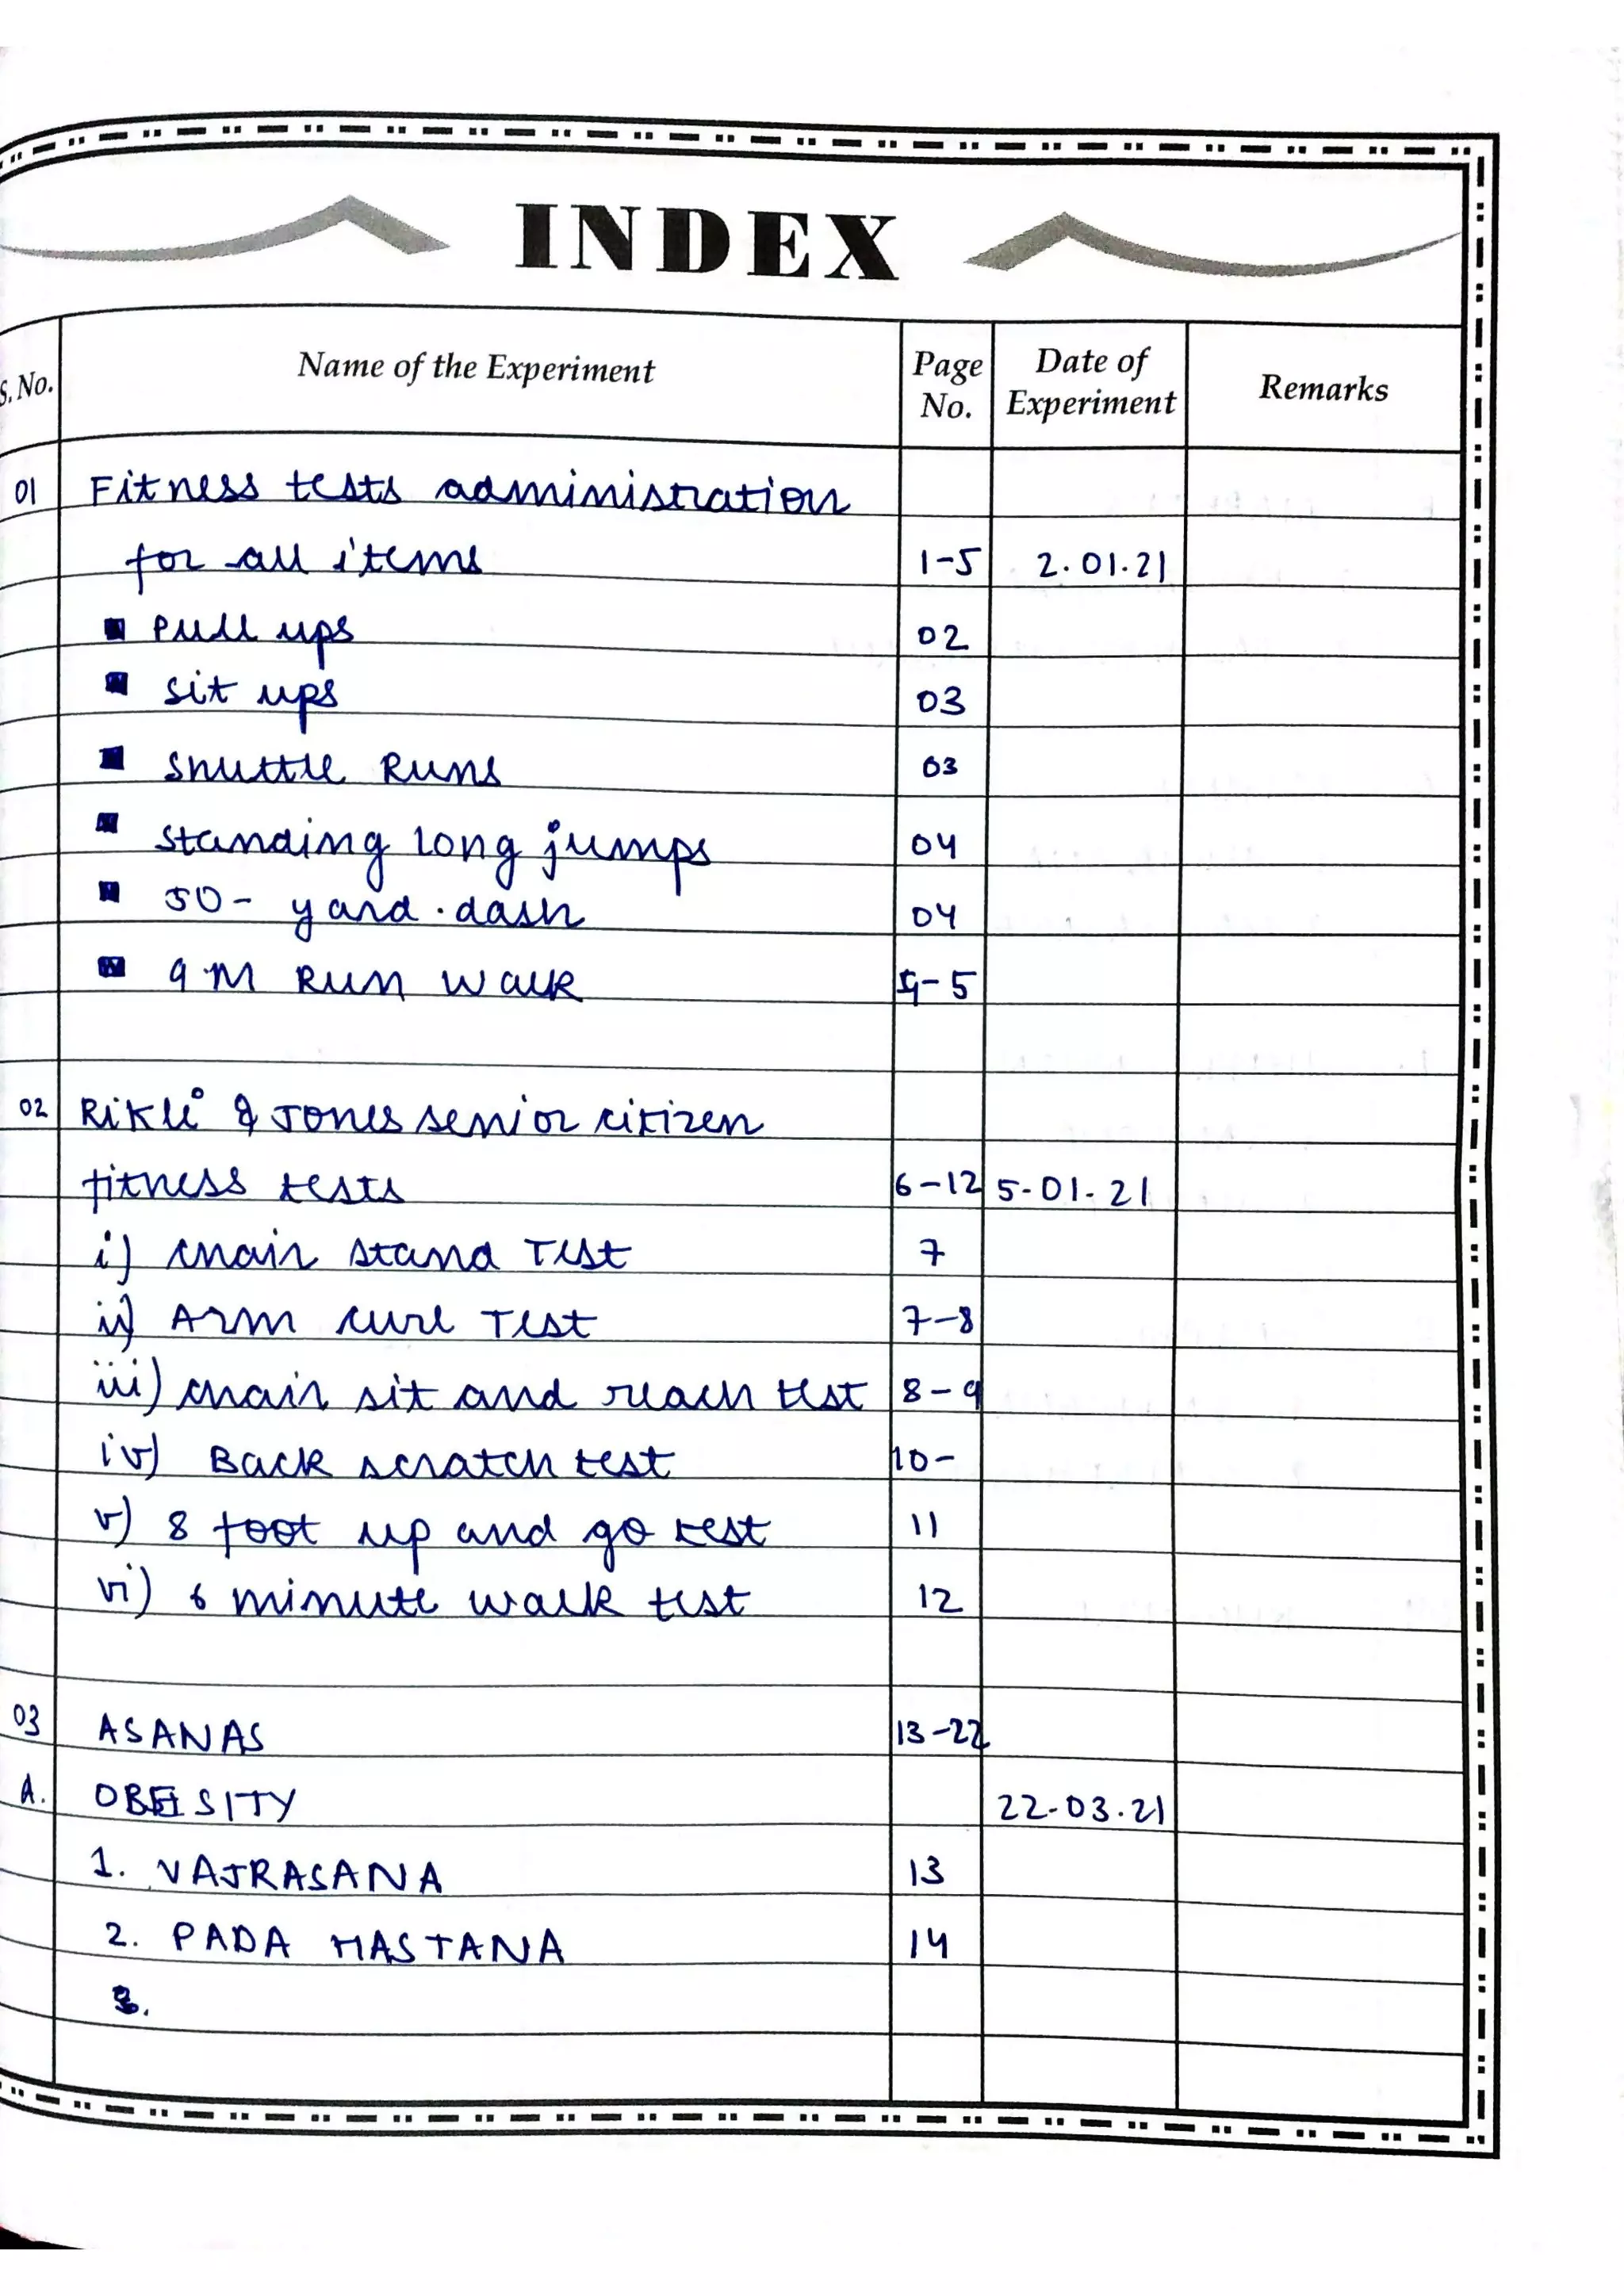 INDEX
S. No. Name of the Experiment Page No. Date of Experiment Remarks
01 Fitness tests administration
for all items 1-5 2.01.21
▪ Pull ups 02
▪ sit ups 03
▪ shuttle Runs 03
▪ standing long jumps 04
▪ 50- yard.dash 04
▪ 9 M Run walk -5
02 Rikli & Jones senior citizen
fitness tests 6-12 5-01-21
i) chair stand Test 7
ii) Arm curl Test 7-8
iii) chair sit and reach test 8-9
iv) Back scratch test 10-
v) 8 foot up and go test 11
vi) 6 minute walk test 12
03 ASANAS 13-22
A. OBESITY 22-03.21
1. VAJRASANA 13
2. PADA HASTANA 14
3.